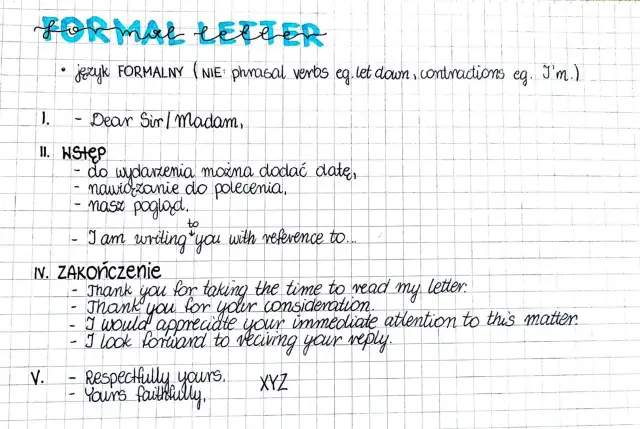 FORMAL LETTER
formal letter
• język FORMALNY (NIE: phrasal verbs eg. let down, contractions eg. I'm.)
I. - Dear Sir/Madam,
II. WSTĘP
- do wydarzenia można dodać datę,
- nawiązanie do polecenia,
- nasz pogląd,
to
- I am writing you with reference to...
IV. ZAKOńCZENIE
- Thank you for taking the time to read my letter.
- Thank you for your consideration.
- I would appreciate your immediate attention to this matter.
- I look forward to reciving your reply.
V. - Respectfully yours,
- Yours faithfully,
XYZ